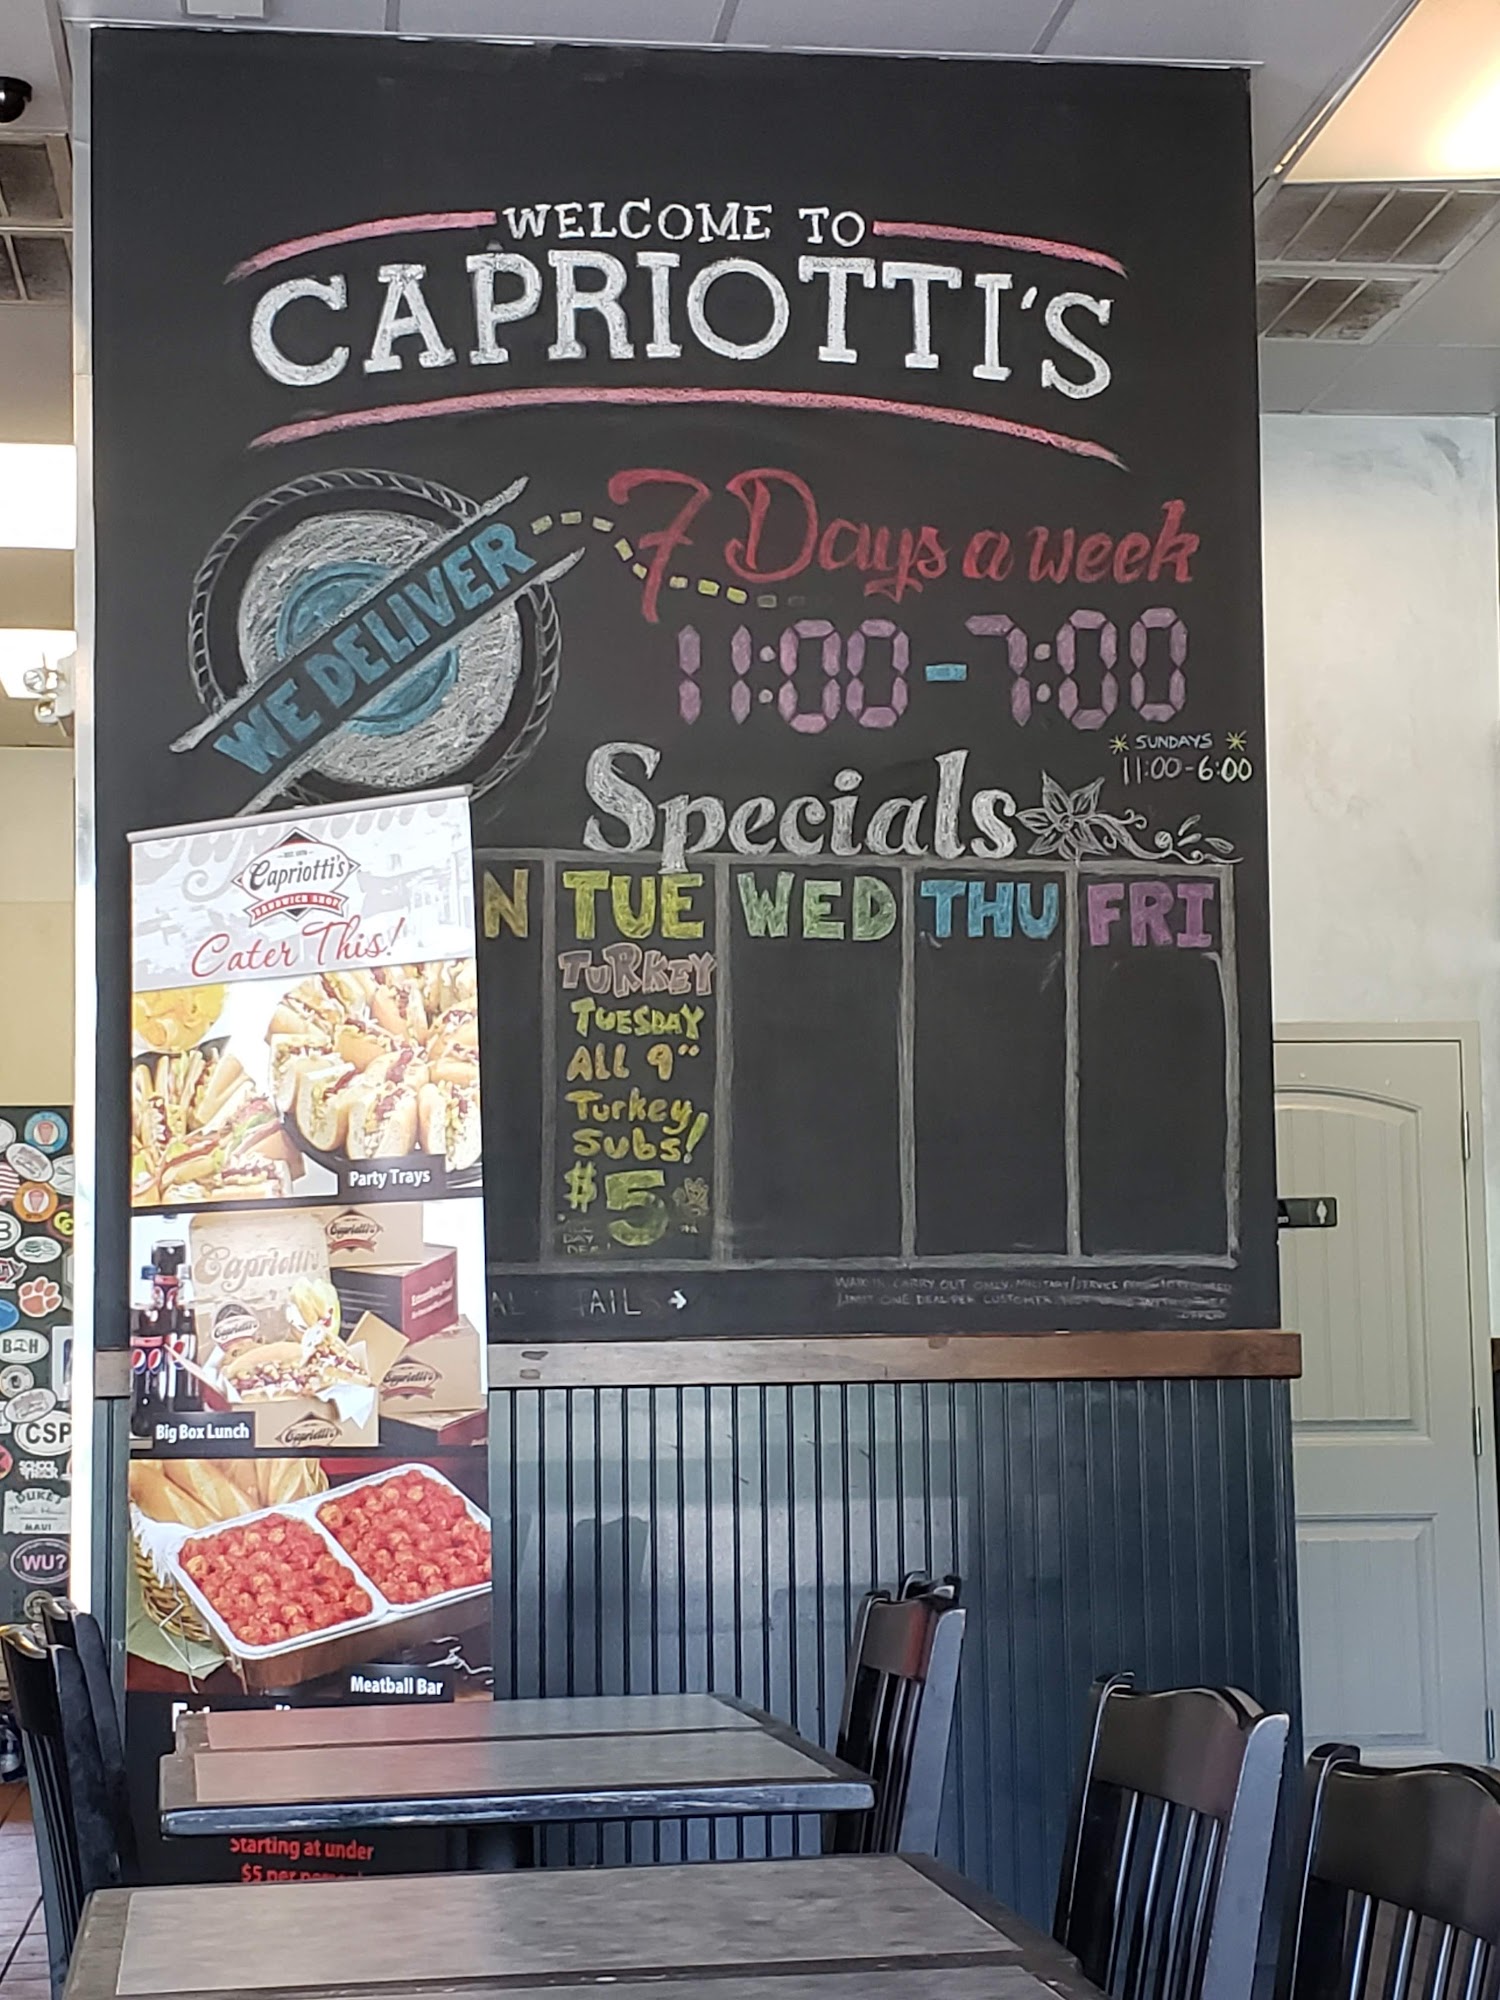 WELCOME TO
CAPRIOTTI'S
WE DELIVER
7 Days a week
11:00-7:00
SUNDAYS
11:00-6:00
Specials
N TUE WED THU FRI
TURKEY
TUESDAY
ALL 9"
Turkey
SUBS!
$5
DAY
AIL
WALK IN, CARRY OUT ONLY. MILITARY/SERVICE
LIMIT ONE DEAL PER CUSTOMER
EST. 1976
Capriotti's
SANDWICH SHOP
Cater This!
Party Trays
Capriotti's
Capriotti's
Capriotti's
Capriotti's
Big Box Lunch
Meatball Bar
Starting at under
$5 per
B
CSP
SCHOOL
DUKE'S
MAUI
WU?